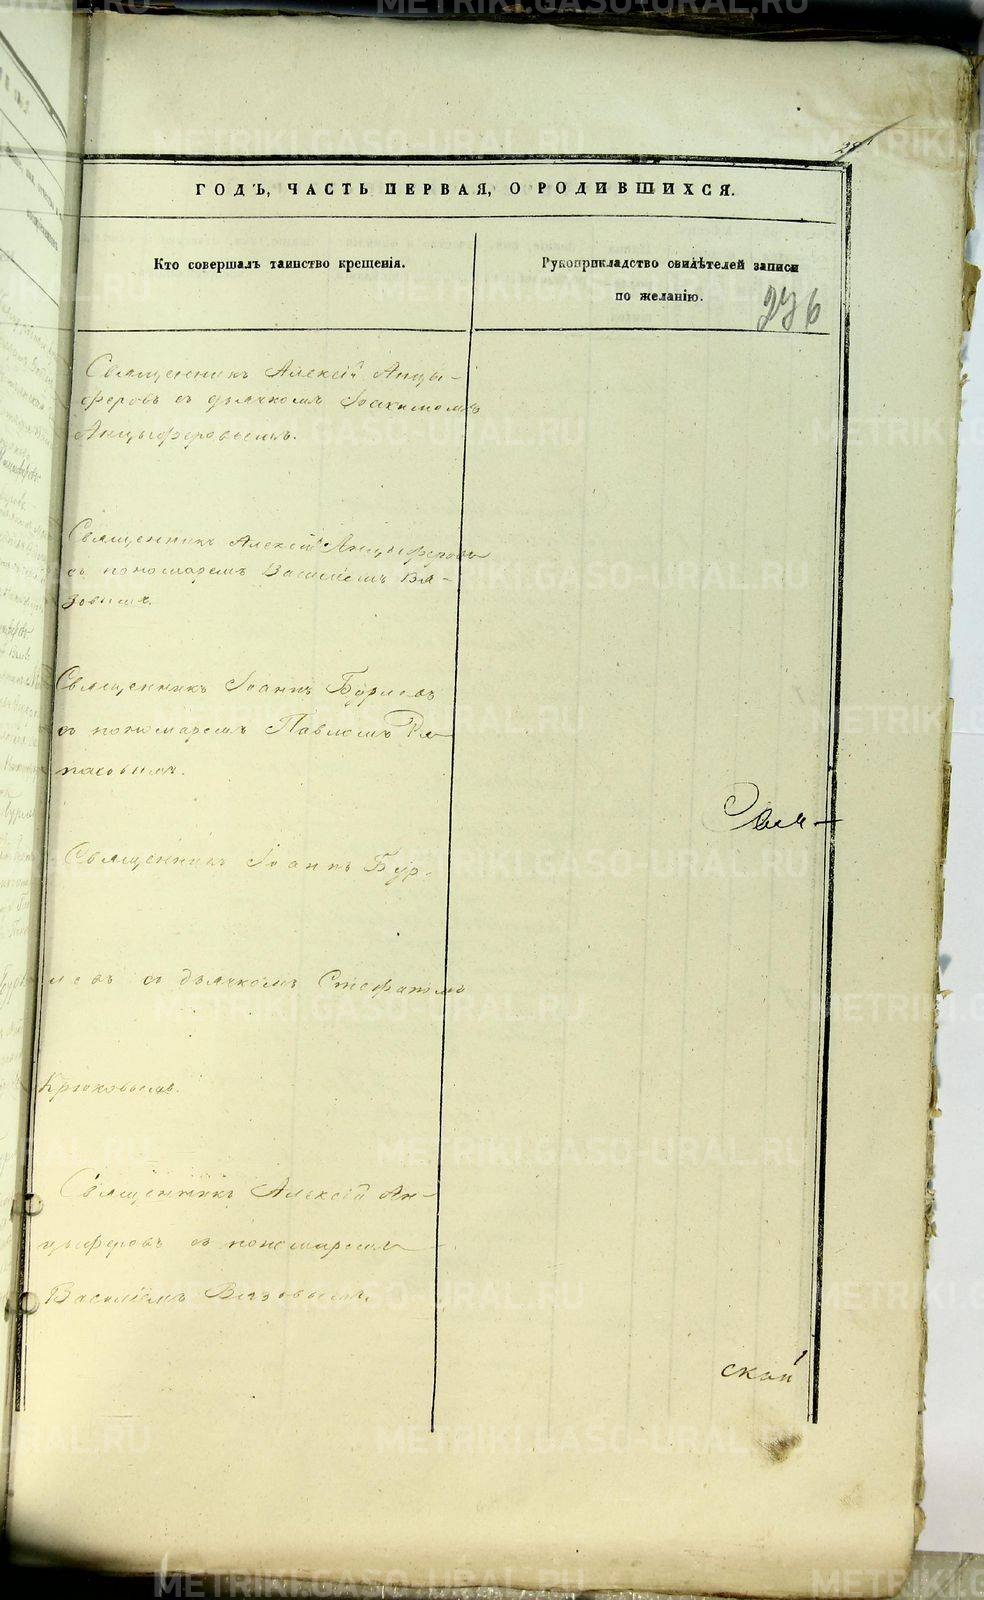 ГОДЪ, ЧАСТЬ ПЕРВАЯ, О РОДИВШИХСЯ.
Кто совершалъ таинство крещенія.
Рукоприкладство свидѣтелей записи
по желанію.
276
Священникъ Алексій Анцы-
феровъ съ дьячкомъ Іоакимомъ
Анцыферовымъ.
Священникъ Алексій Анцыферовъ
съ пономаремъ Василіемъ Вя-
зовымъ.
Священникъ Іоаннъ Бурлевъ
съ пономаремъ Павломъ
Священникъ Іоаннъ Бур-
левъ съ дьячкомъ Стефаномъ
Крюковымъ.
Священникъ Алексій Ан-
цыферовъ съ пономаремъ
Василіемъ Вязовымъ.
ской
METRIKI.GASO-URAL.RU